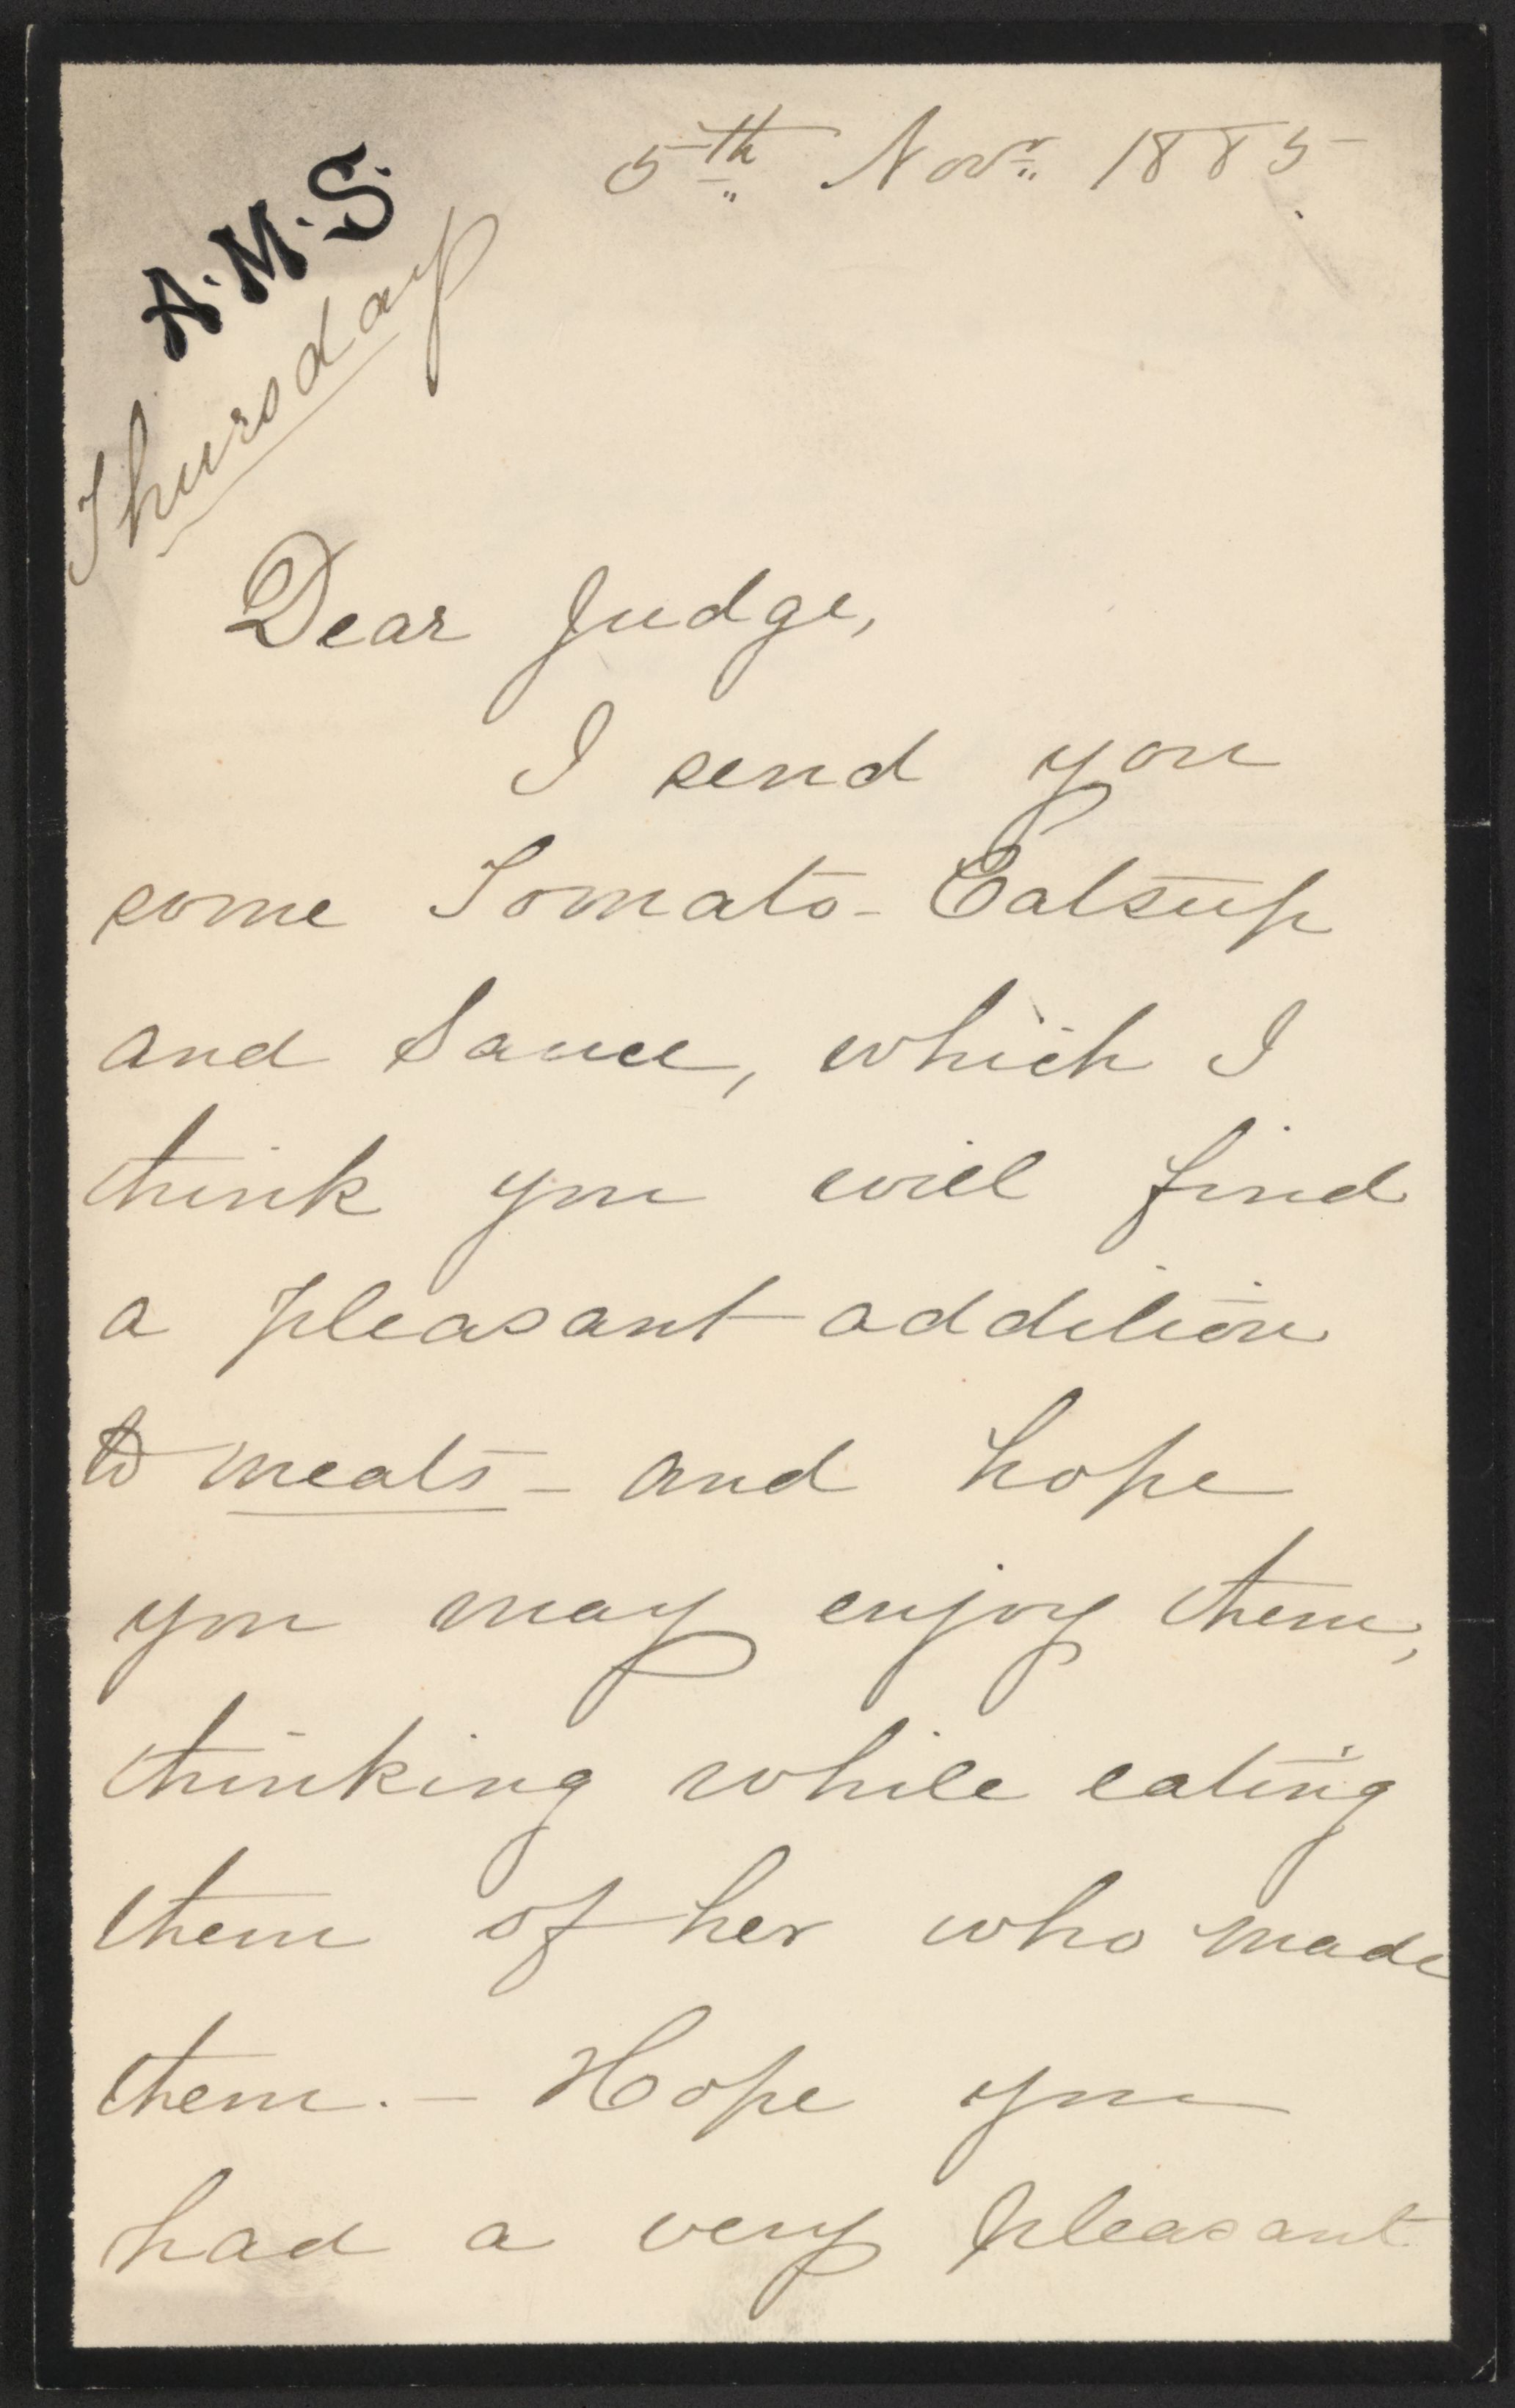 5th Novr. 1885
A.M.S.
Thursday
Dear Judge,
I send you
some Tomato-Catsup
and Sauce, which I
think you will find
a pleasant addition
to meats - and hope
you may enjoy them,
thinking while eating
them of her who made
them. - Hope you
had a very pleasant